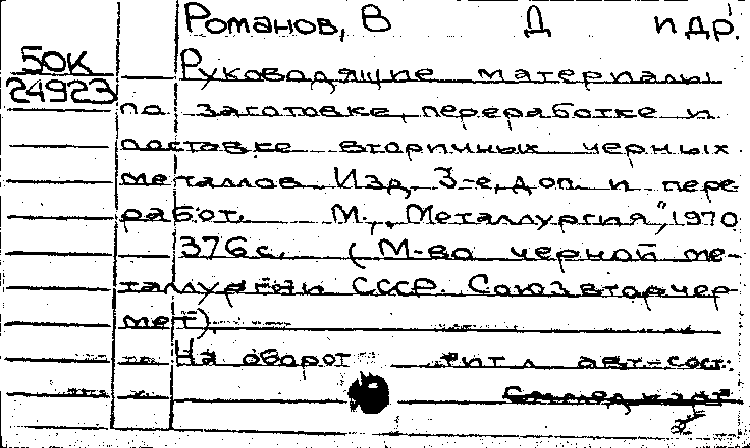 Романов, В Д и др.
50К
24923
Руководящие материалы
по заготовке, переработке и
поставке вторичных черных
металлов. Изд. 3-е, доп. и пере
работ. М., „Металлургия", 1970
376 с. (М-во черной ме-
таллургии СССР. Союзвторчер
мет).
На оборот тит л авт-сост.